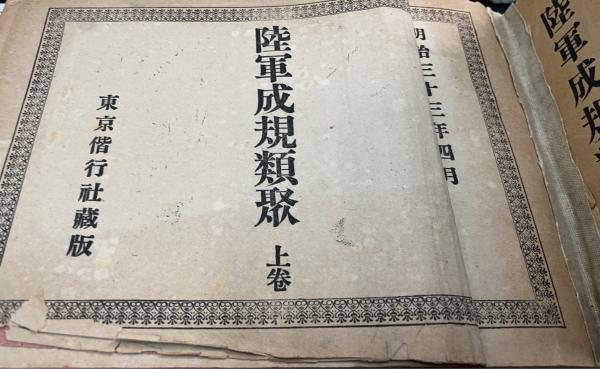 明治三十三年四月
陸軍成規類聚 上卷
東京偕行社藏版
陸軍成規